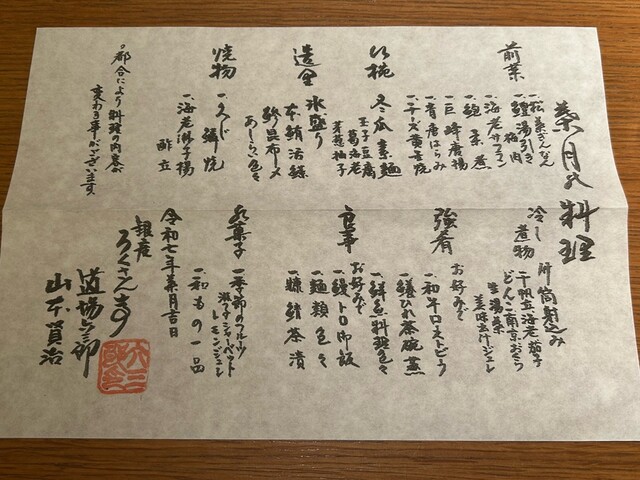 葉月の料理
前菜
一、松茸きんなん
一、鱧湯引き
梅肉
一、海老サフラン
一、鮑柔煮
一、巨峰唐揚
一、青唐はらみ
一、チーズ黄金焼
吸椀
冬瓜素麺
玉子豆腐
葛海老
芽葱 柚子
造里
氷盛り
本鮪 活鱸
鯵昆布〆
あしらい色々
焼物
一、くえ鍋焼
一、海老湯子揚
酢立
。都合により料理の内容が
変わる事がございます。
冷し
煮物
射込み
干帆立 海老 茄子
どんこ 南京 おくら
生湯葉
美味出汁ジュレ
強肴
お好みで
一、和牛ローストビーフ
一、鱶ひれ茶碗蒸
一、鮮魚料理色々
食事
お好みで
一、鰻トロ御飯
一、麺類色々
一、鯖茶漬
水菓子
一、季節のフルーツ
シャーベット
レモンジュレ
一、和もの一品
令和七年葉月吉日
銀座
ろくさん亭
道場六三郎
山本賢治